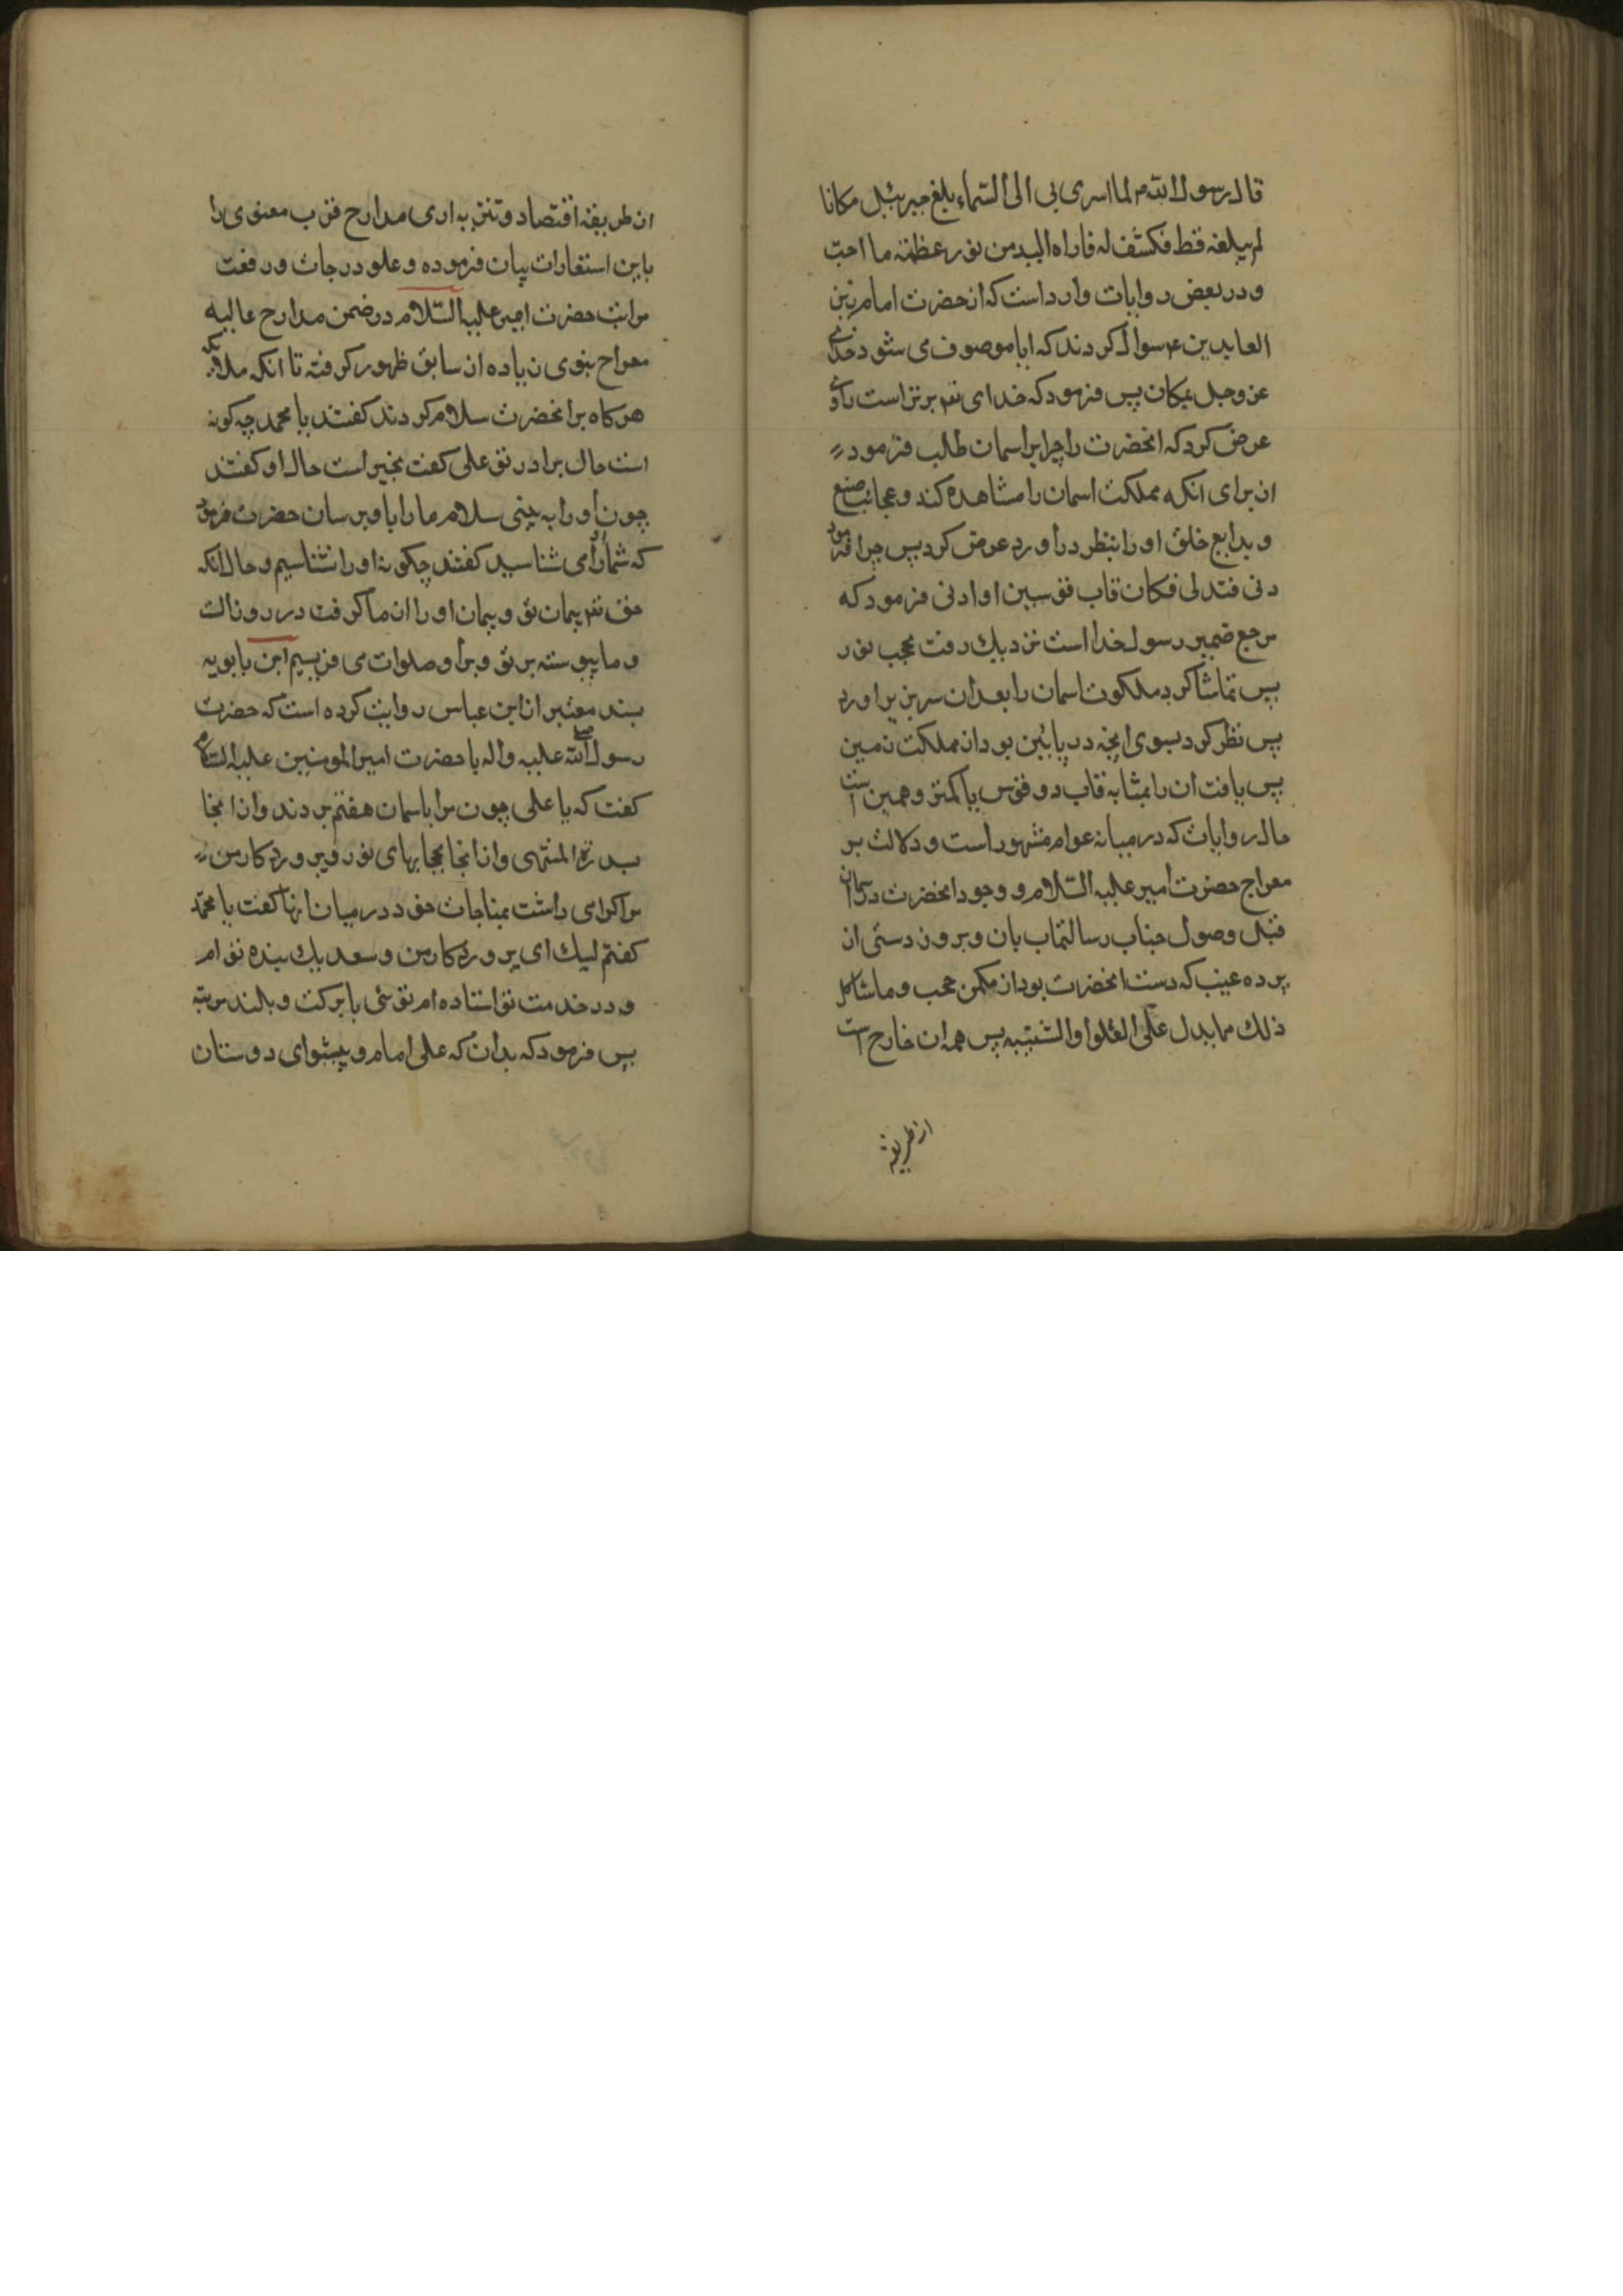 قال رسول الله م لما اسری بی الی السّماء بلغ جبرئیل مکانا
لم یبلغه قط فکشف له فاراه الیه من نور عظمته ما احبّ
و در بعض روایات وارد است که از حضرت امام زین
العابدین ع سوال کردند که ایا موصوف می شود خدای
عز وجل بمکان پس فرمود که خدای تعم برتر است راوی
عرض کرد که انحضرت را چرا بر اسمان طالب فرمود
از برای انکه مملکت اسمان را مشاهده کند و عجائب صنع
و بدایع خلق او را بنظر در آورد عرض کرد پس چرا فرمود
دنی فتدلی فکان قاب قوسین او ادنی فرمود که
مرجع ضمیر رسول خدا است نزدیك رفت بحجب نور
پس تماشا کرد ملکوت اسمان را بعد از سر بزیر اورد
پس نظر کرد بسوی انچه در پایئین بود از مملکت زمین
پس یافت ان را بمثابه قاب دو قوس یا کمتر و همین است
حال روایات که در میانه عوام مشهور است و دلالت بر
معراج حضرت امیر علیه السّلام و وجود انحضرت در اسمان
قبل وصول جناب رسالتماب بان و برون دستی از
پرده غیب که دست انحضرت بود از مکمن حجب و ماشاکل
ذلك مما یدل علی الغلوا والتشبیه پس همه ان خارج است
از طریقه
از طریقه اقتصاد و تنزیه اری مدارج قرب معنوی را
باین استعارات بیان فرموده و علو درجات و رفعت
مراتب حضرت امیر علیه السّلام در ضمن مدارج عالیه
معراج نبوی زیاده از سابق ظهور کرفته تا انکه ملائکه
هرکاه بر انحضرت سلام کردند کفتند یا محمد چه کونه
است حال برادر تو علی کفت بخیر است حال او کفتند
چون او را به بینی سلام ما را باو برسان حضرت فرمود
که شما او را می شناسید کفتند چکونه او را نشناسیم و حال انکه
حق تعم پیمان تو و پیمان او را از ما کرفت در روز الست
و ما پیوسته بر تو و بر او صلوات می فرسیم ابن بابویه
بسند معتبر از ابن عباس روایت کرده است که حضرت
رسول الله صلی علیه واله با حضرت امیر المومنین علیه السّلام
کفت که یا علی چون مرا باسمان هفتم بردند و از انجا
بسدرة المنتهی و از انجا بحجابهای نور و پرورد کار من
مرا کرامی داشت بمناجات خود در میان انها کفت یا محمّد
کفتم لبیك ای پروردکار من و سعدیك بنده تو ام
و در خدمت تو استاده ام توئی با برکت و بلند مرتبه
پس فرمود که بدان که علی امام و پیشوای دوستان